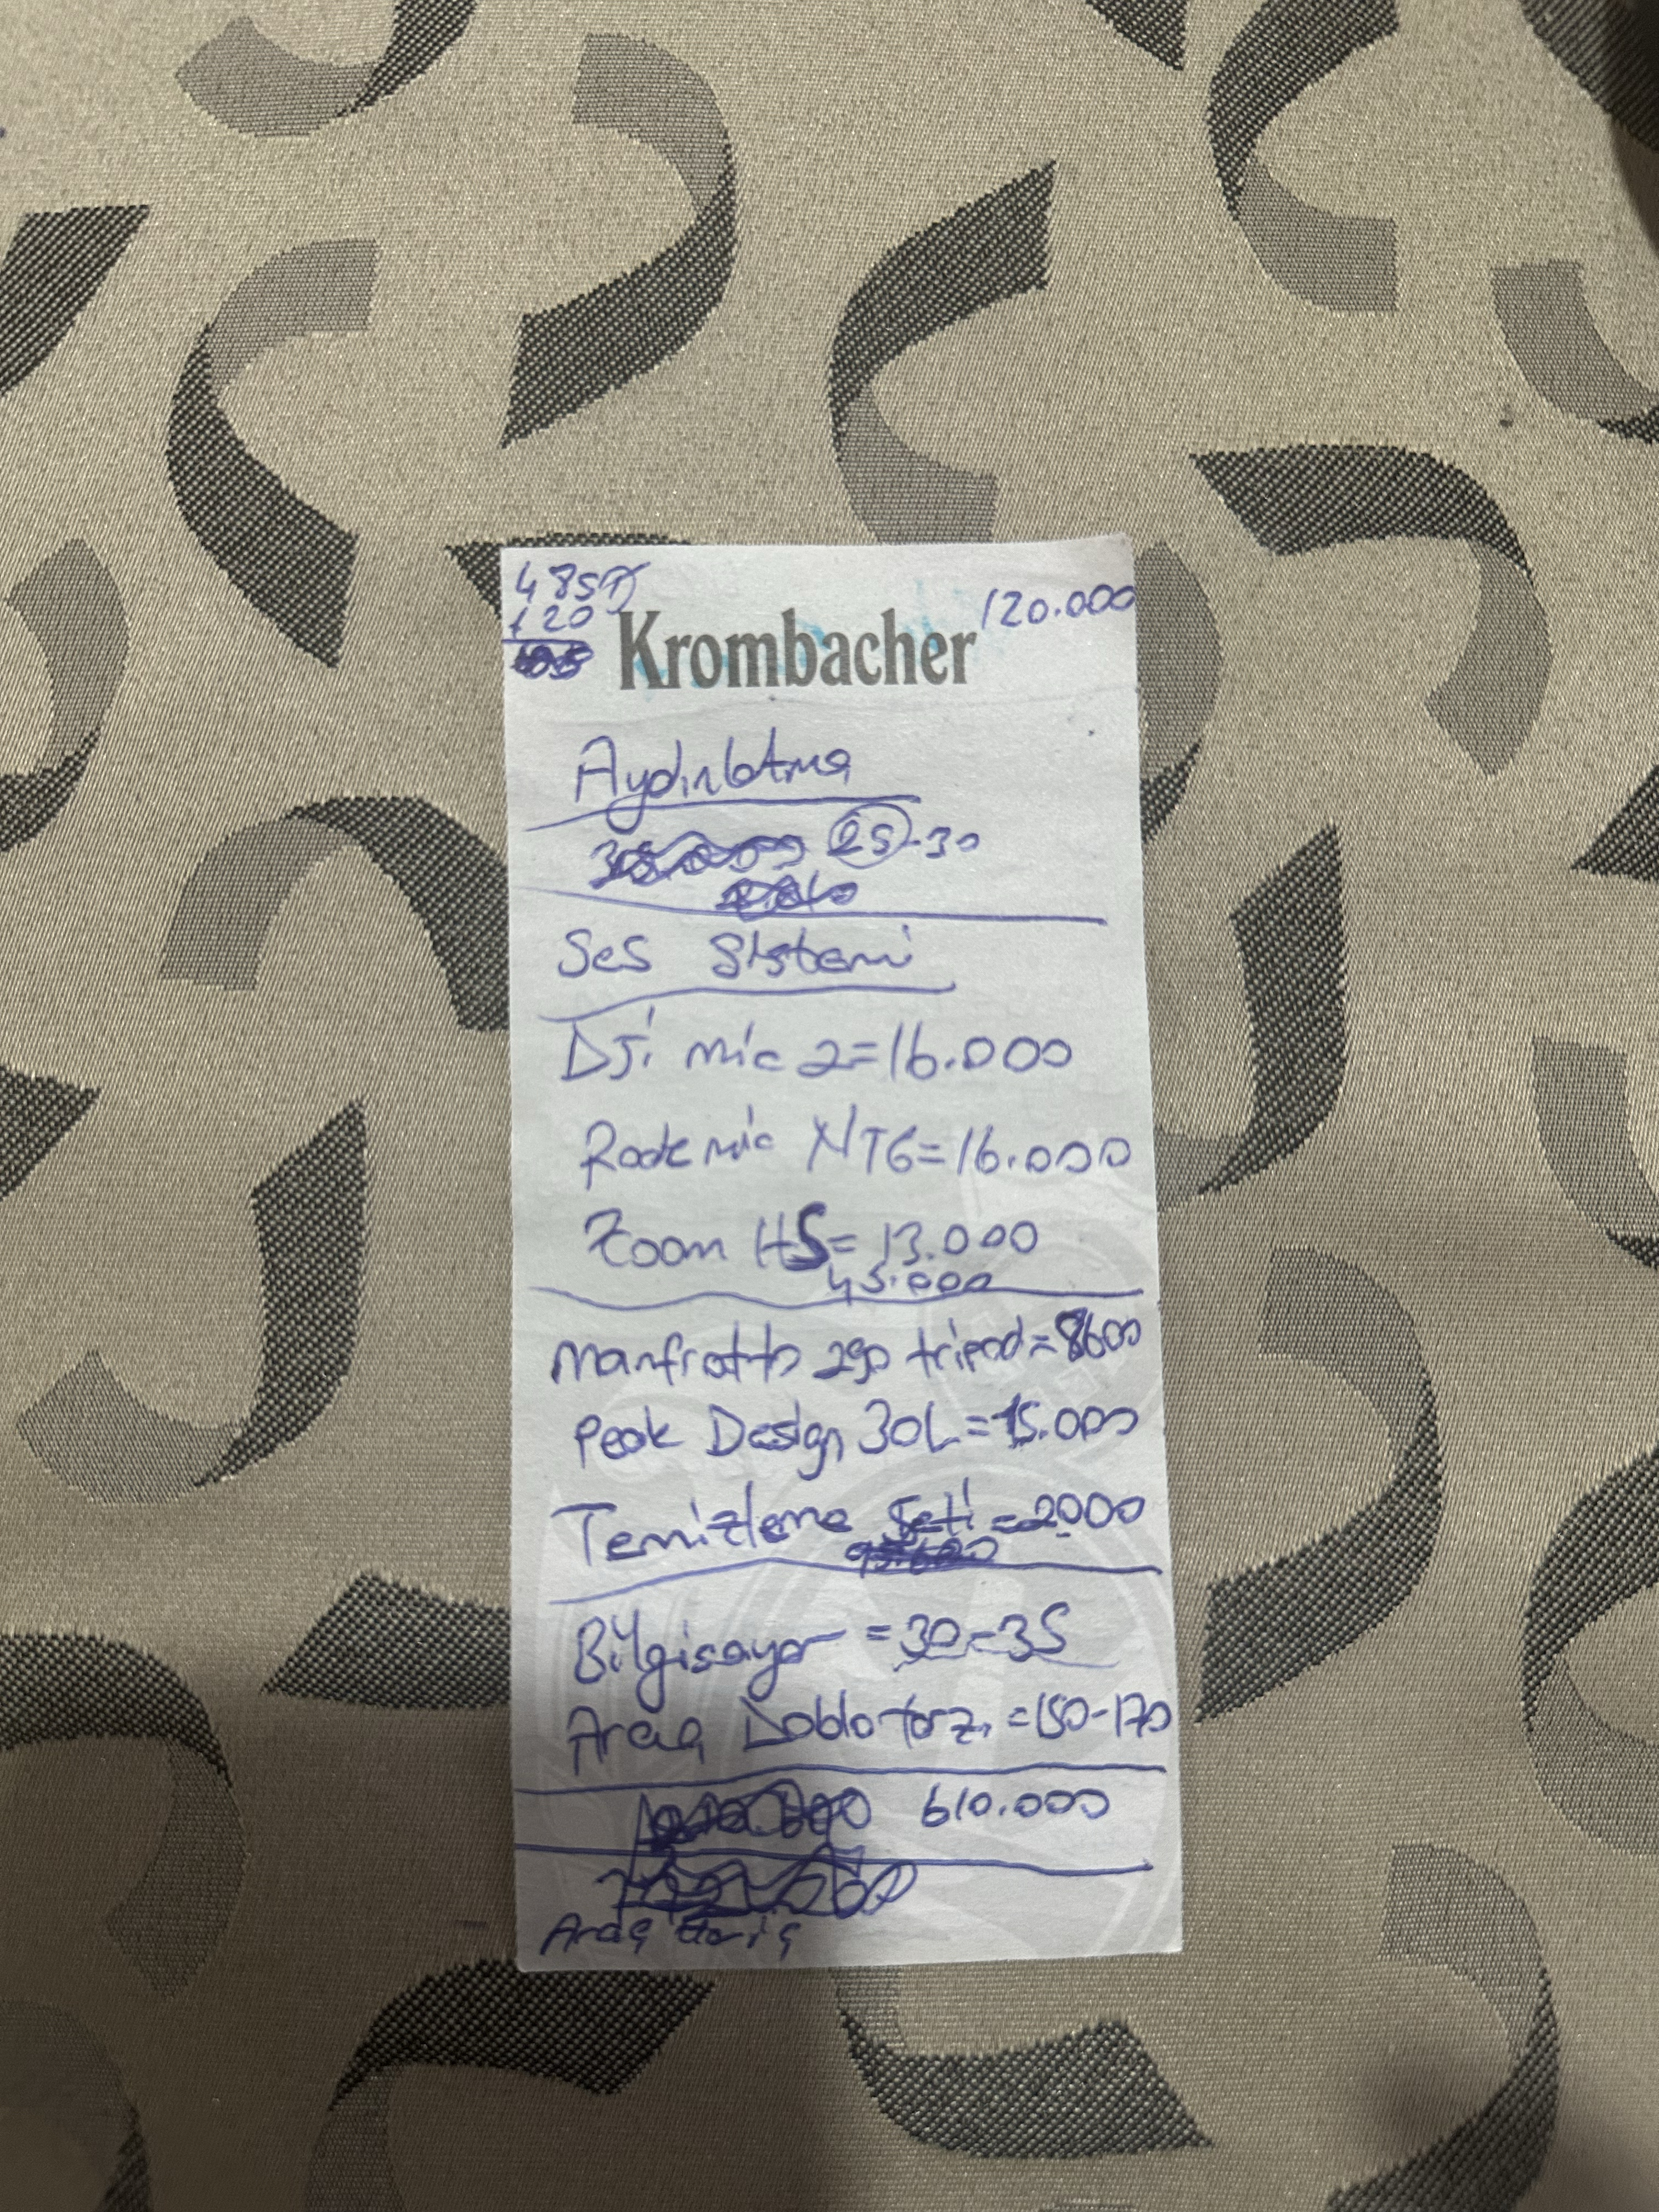 485
120.000
+ 20
Krombacher
Aydınlatma
25-30
Ses Sistemi
DJi mic 2=16.000
Rode mic NTG=16.000
Zoom H5= 13.000
45.000
Manfrotto 290 tripod=8600
Peak Design 30L=15.000
Temizleme Seti=2000
Bilgisayar =30-35
Araç Doblo tarzı =150-170
610.000
Araç Hariç